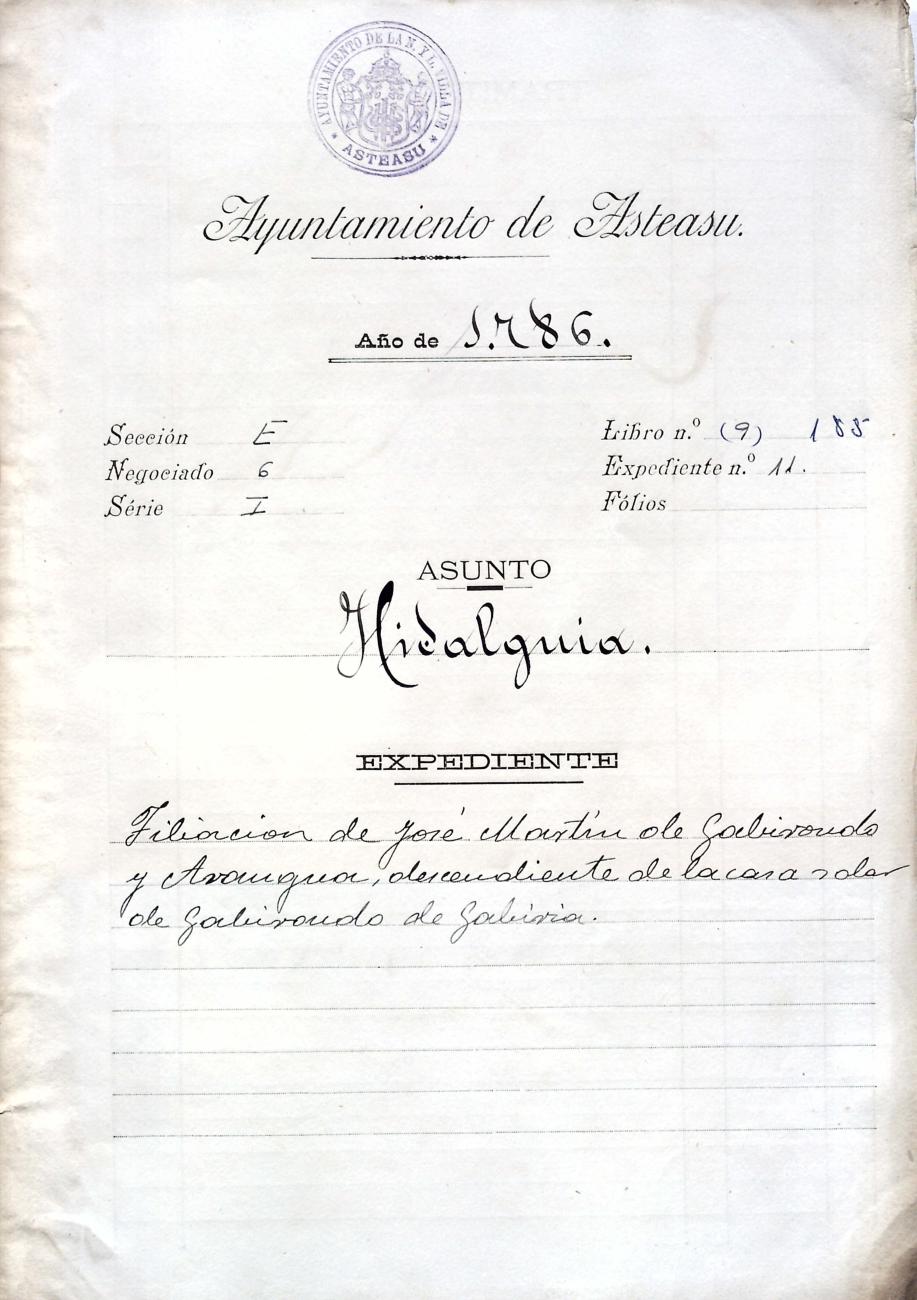 AYUNTAMIENTO DE LA N. Y L. VILLA DE
* ASTEASU *
Ayuntamiento de Asteasu.
Año de 1.786.
Sección E
Libro n.º (9) 185
Negociado 6
Expediente n.º 11.
Série I
Fólios
ASUNTO
Hidalguia.
EXPEDIENTE
Filiacion de José Martín de Gabirondo
y Arangua, descendiente de la casa solar
de Gabirondo de Gabiria.